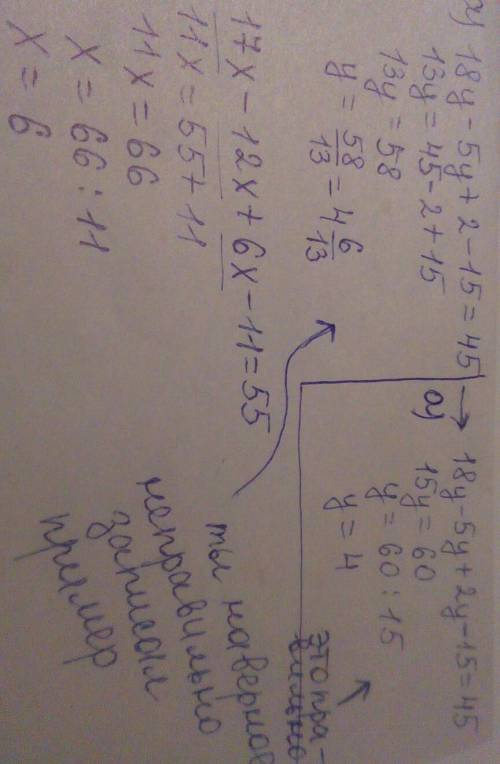 а) 18y - 5y + 2 - 15 = 45
13y = 45 - 2 + 15
13y = 58
y = 58/13 = 4 6/13
17x - 12x + 6x - 11 = 55
11x = 55 + 11
11x = 66
x = 66 : 11
x = 6
а) → 18y - 5y + 2y - 15 = 45
15y = 60
y = 60 : 15
y = 4
это пра-
вильно
ты наверное
направильно
записал
пример